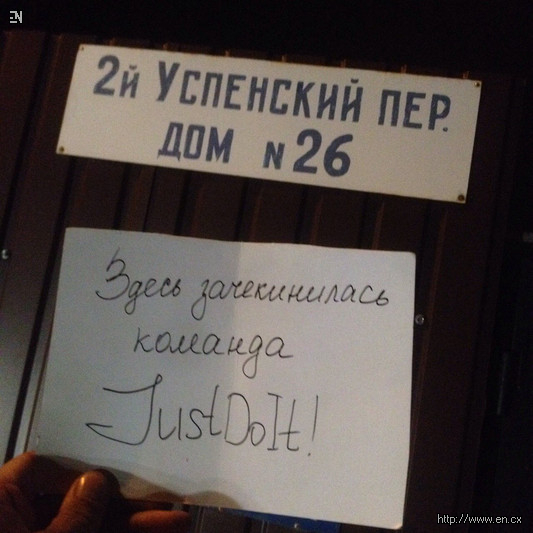 EN
2й УСПЕНСКИЙ ПЕР.
ДОМ N 26
Здесь зачекинилась
команда
JustDoIt!
http://www.en.cx